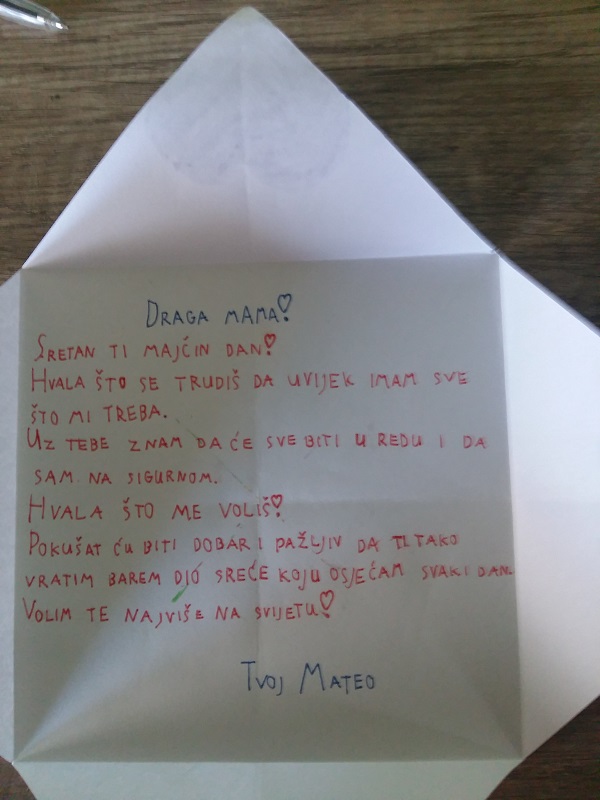 DRAGA MAMA!
SRETAN TI MAJČIN DAN!
HVALA ŠTO SE TRUDIŠ DA UVIJEK IMAM SVE
ŠTO MI TREBA.
UZ TEBE ZNAM DA ĆE SVE BITI U REDU I DA
SAM NA SIGURNOM.
HVALA ŠTO ME VOLIŠ!
POKUŠAT ĆU BITI DOBAR I PAŽLJIV DA TI TAKO
VRATIM BAREM DIO SREĆE KOJU OSJEĆAM SVAKI DAN.
VOLIM TE NAJVIŠE NA SVIJETU!
TVOJ MATEO